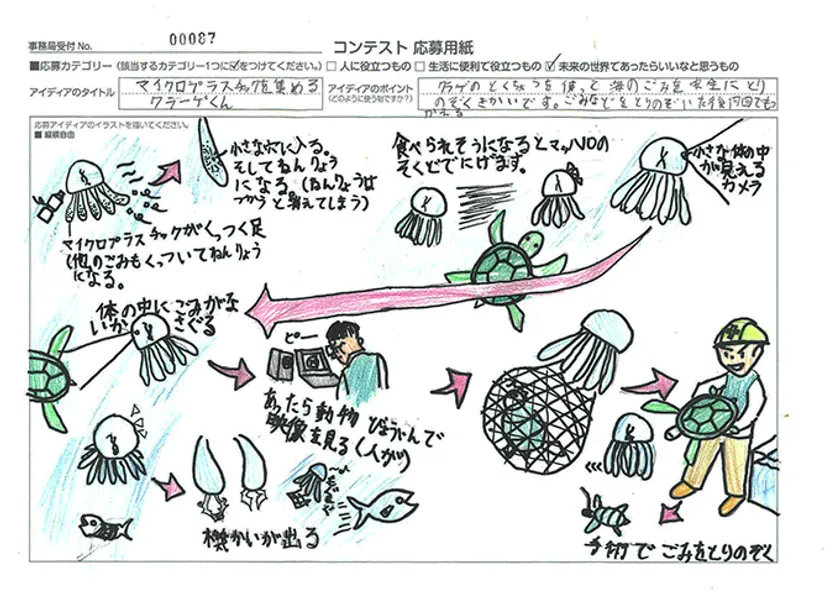 事務局受付 No. 00087
コンテスト 応募用紙
■応募カテゴリー (該当するカテゴリー1つに☑をつけてください。) □人に役立つもの □生活に便利で役立つもの ☑未来の世界であったらいいなと思うもの
アイディアのタイトル
マイクロプラスチックを集める
クラーゲくん
アイディアのポイント
(どのように使う物ですか?)
クラゲのとくちょうを使って海のごみを安全にとり
のぞくきかいです。ごみなどをとりのぞいた後何回でもつ
かえる
応募アイディアのイラストを描いてください。
■縦横自由
小さな穴に入る。
そしてねんりょう
になる。(ねんりょうは
つかうと消えてしまう)
食べられそうになるとマッハ10の
そくどでにげます。
小さな体の中
が見える
カメラ
マイクロプラスチックがくっつく足
(他のごみもくっついてねんりょう
になる。
体の中にごみがな
いか さぐる
ピー
あったら動物 びょういんで
映像を見る(人が)
機かいが出る
手術でごみをとりのぞく